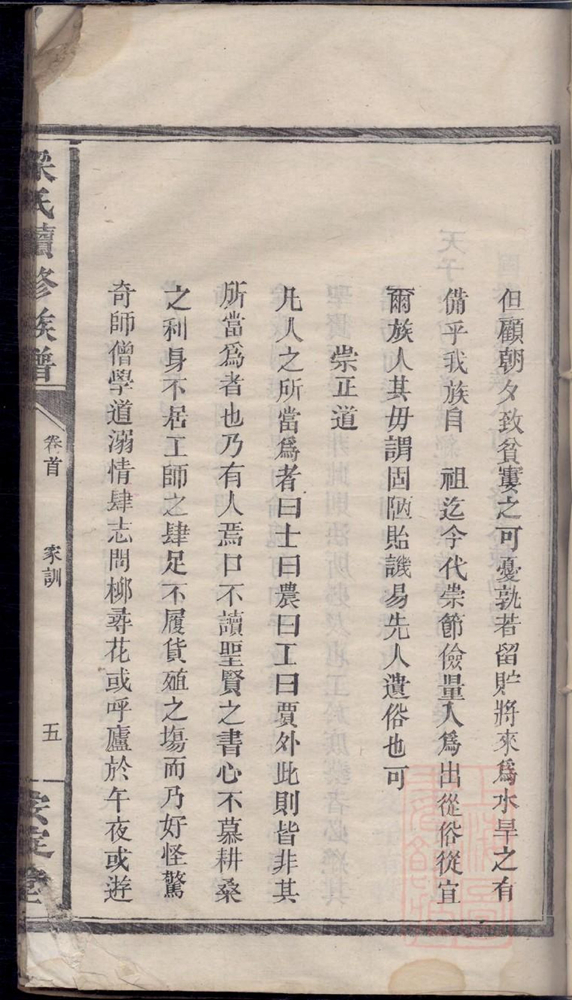 但顧朝夕致貧寠之可憂孰若留貯將來爲水旱之有
備乎我族自 祖迄今代崇節儉量入爲出從俗從宜
爾族人其毋謂固陋貽譏易先人遺俗也可
崇正道
凡人之所當爲者曰士曰農曰工曰賈外此則皆非其
所當爲者也乃有人焉口不讀聖賢之書心不慕耕桑
之利身不居工師之肆足不履貨殖之塲而乃好怪驚
奇師僧學道溺情肆志問柳尋花或呼廬於午夜或遊
梁氏續修族譜
卷首
家訓
五
安定堂